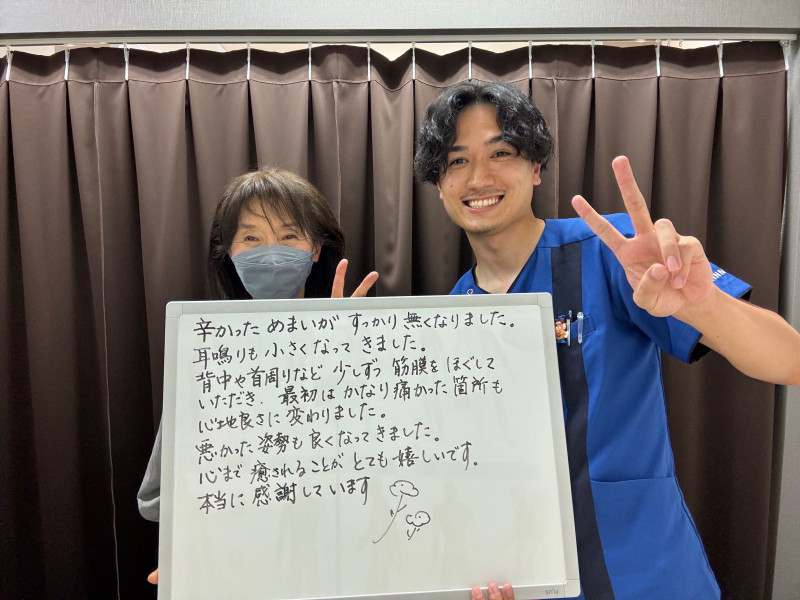 辛かった めまいが すっかり 無くなりました。
耳鳴りも 小さくなって きました。
背中や首周りなど 少しずつ 筋膜を ほぐして
いただき、最初は かなり 痛かった 箇所も
心地良さに 変わりました。
悪かった 姿勢も 良くなって きました。
心まで 癒されることが とても 嬉しいです。
本当に 感謝しています